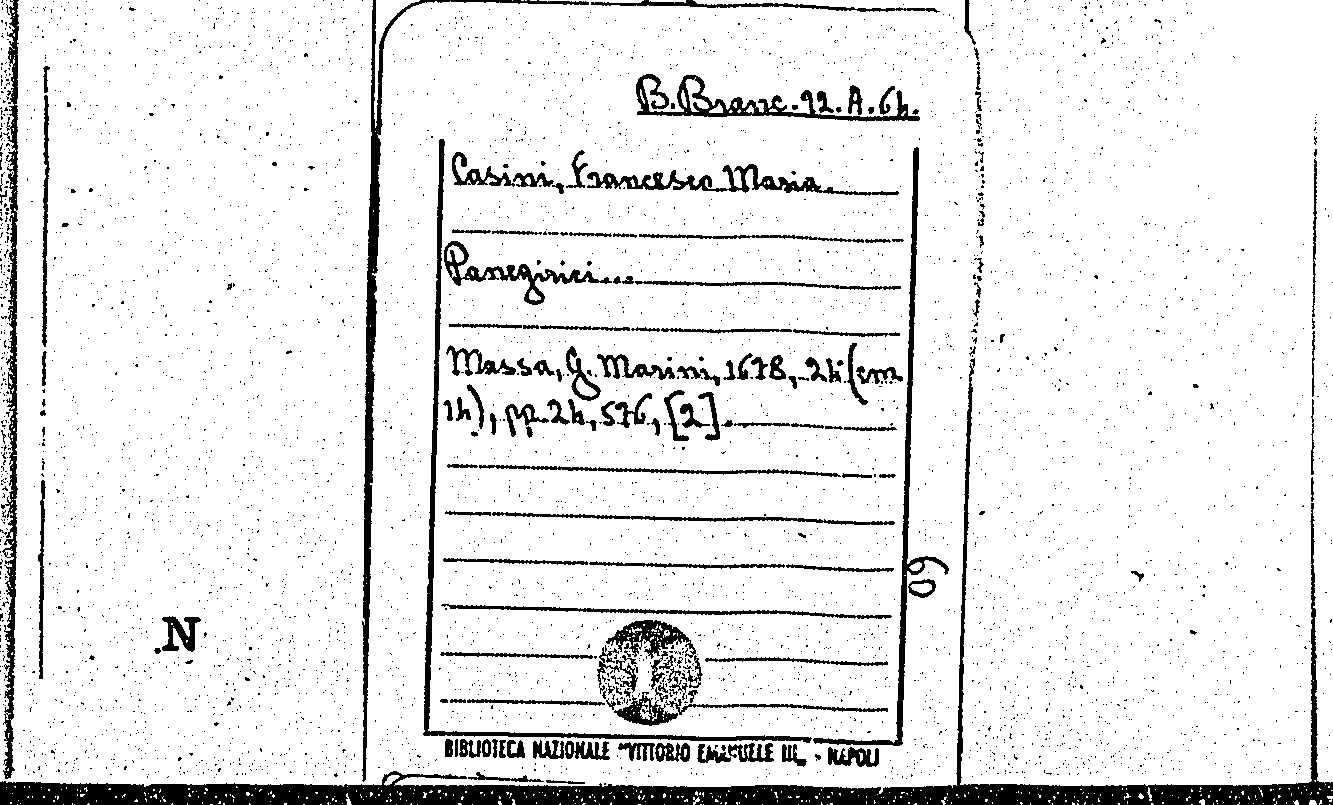 B.Branc.92.A.64.
Casini, Francesco Maria.
Panegirici...
Massa, G. Marini, 1678, 24° (cm
14), pp.24, 576, [2].
60
N
BIBLIOTECA NAZIONALE "VITTORIO EMANUELE III" - NAPOLI